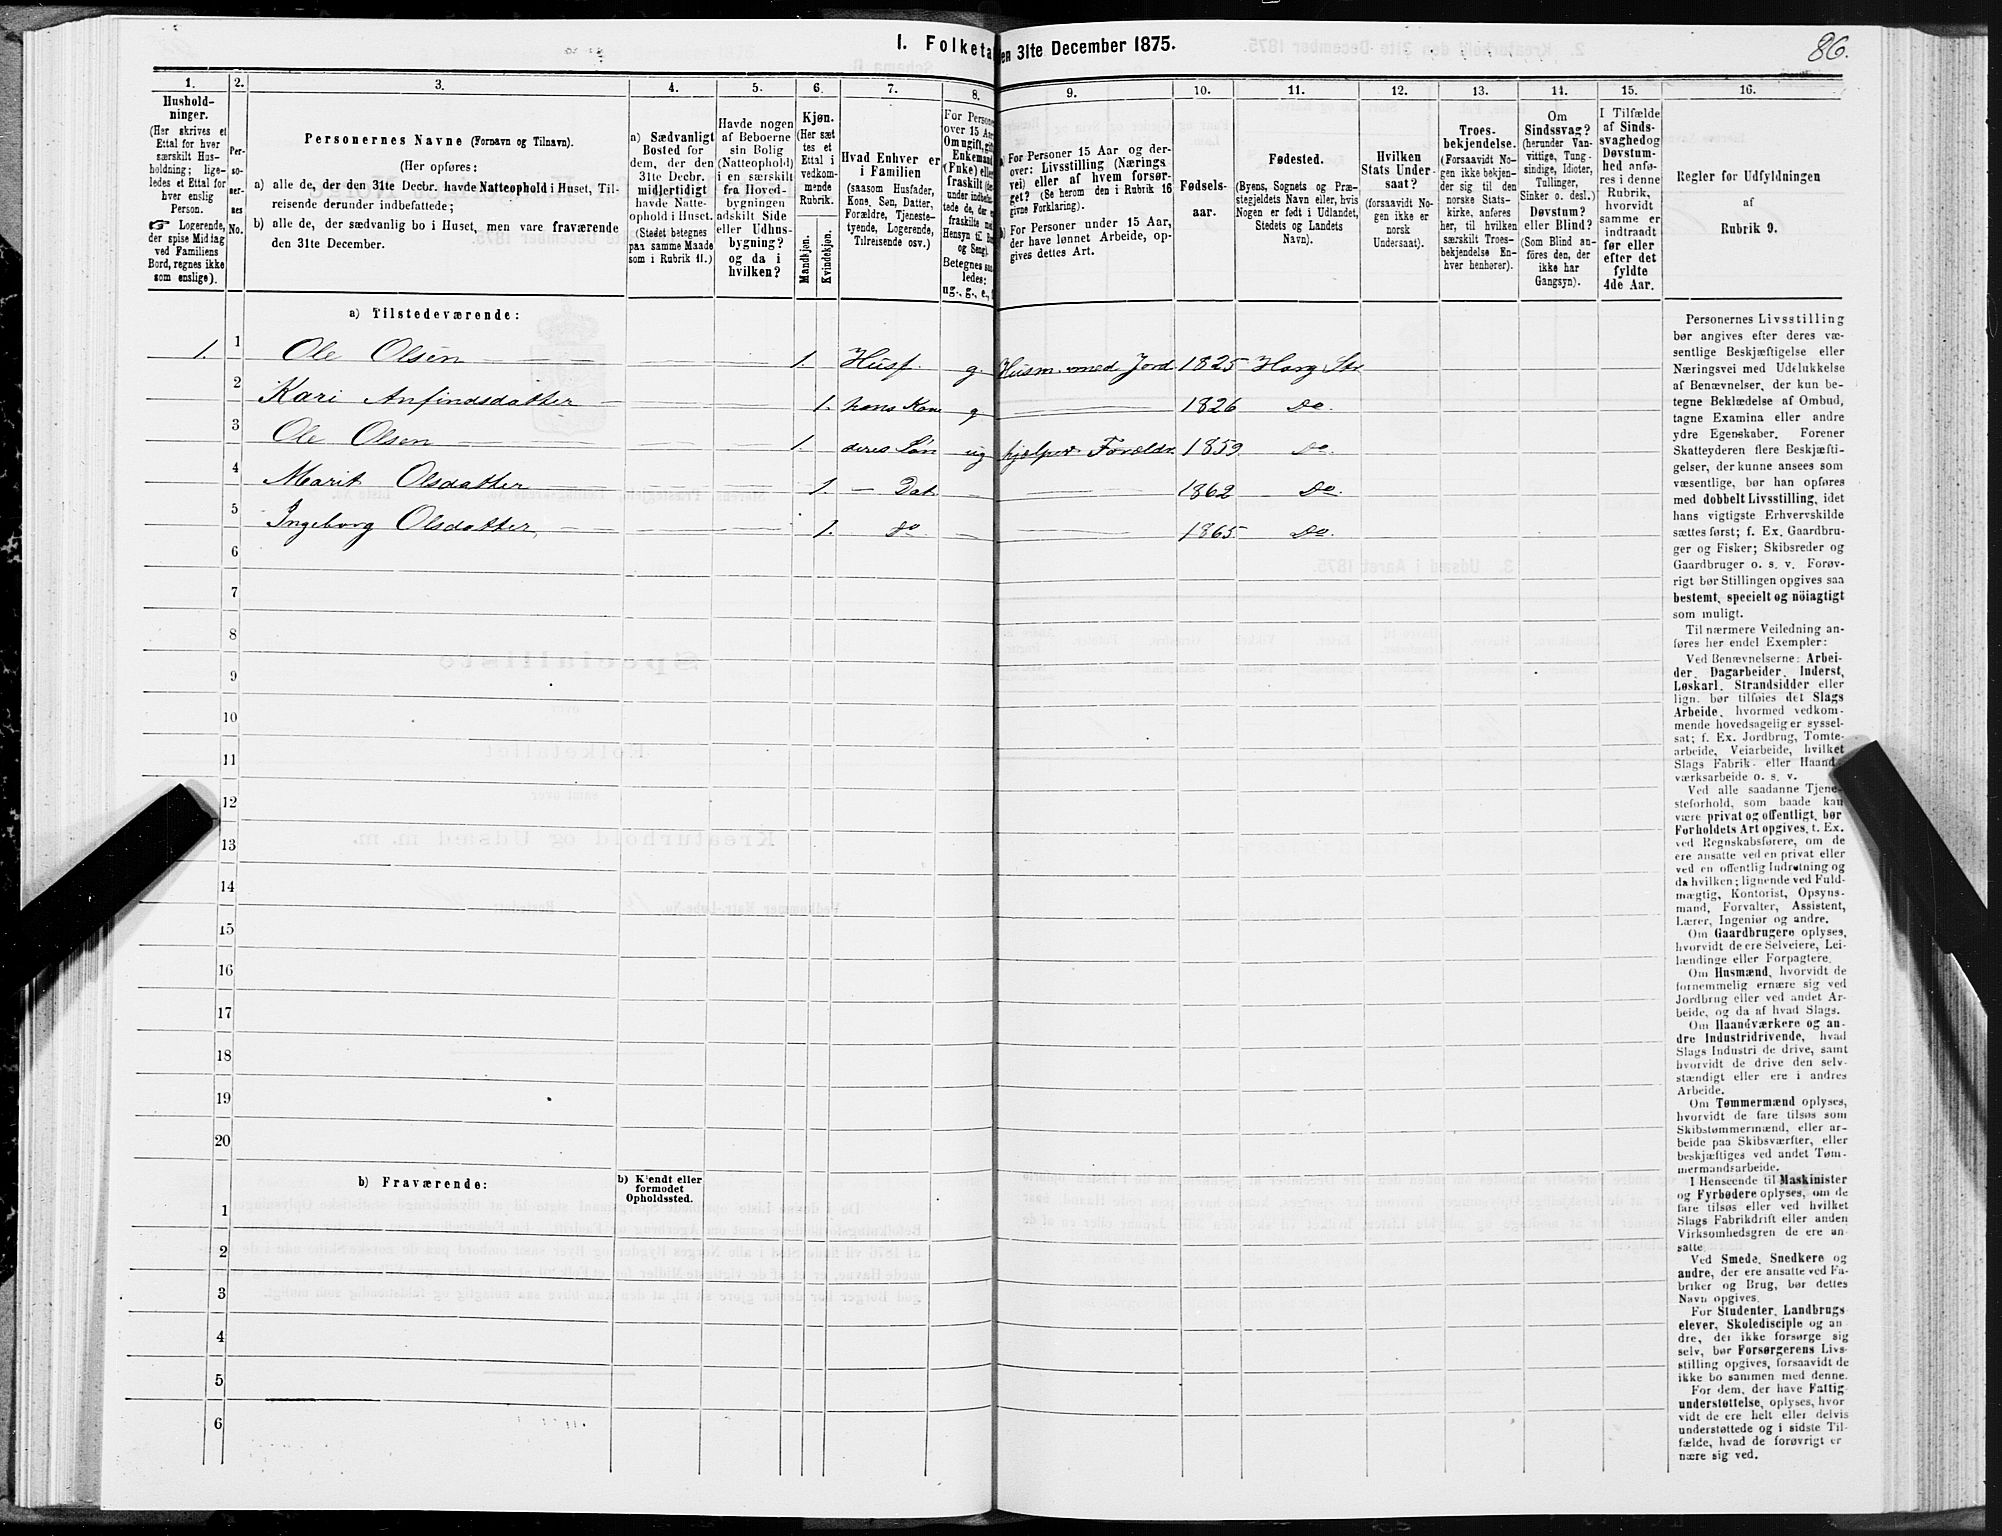 I. Folketa
en 31te December 1875.
86.
1.
2.
3.
4.
5.
6.
7.
8.
9.
10.
11.
12.
13.
14.
15.
16.
Hushold-
ninger.
(Her skrives et
Ettal for hver
særskilt Hus-
holdning; lige-
ledes et Ettal for
hver enslig
Person.
☞ Logerende,
der spise Middag
ved Familiens
Bord, regnes ikke
som enslige).
Per-
so-
ner-
nes
No.
Personernes Navne (Fornavn og Tilnavn).
(Her opføres:
a) alle de, der den 31te Decbr. havde Natteophold i Huset, Til-
reisende derunder indbefattede;
b) alle de, der sædvanlig bo i Huset, men vare fraværende
den 31te December.
a) Sædvanligt
Bosted for
dem, der den
31te Decbr.
midlertidigt
havde Natte-
ophold i Huset.
(Stedet betegnes
paa samme Maade
som i Rubrik 11.)
Havde nogen
af Beboerne
sin Bolig
(Natteophold)
i en særskilt
fra Hoved-
bygningen
adskilt Side
eller Udhus-
bygning?
og da i
hvilken?
Kjøn.
(Her sæt
tes et
Ettal i
vedkom-
mende
Rubrik.
Mandkjøn.
Kvindekjøn.
Hvad Enhver er
i Familien
(saasom Husfader,
Kone, Søn, Datter,
Forældre, Tjeneste-
tyende, Logerende,
Tilreisende osv.)
For Persone
over 15 Aar
Om ugift, gift
Enkemand
(Enke) eller
fraskilt (de
under indbefat-
tede de, der e
fraskilte med
Hensyn til Bo
og Seng).
Betegnes saa
ledes:
ug., g., e.,
a) For Personer 15 Aar og der-
over: Livsstilling (Nærings
vei) eller af hvem forsør-
get? (Se herom den i Rubrik 16
givne Forklaring).
b) For Personer under 15 Aar,
der have lønnet Arbeide, op-
gives dettes Art.
Fødsels-
aar.
Fødested.
(Byens, Sognets og Præ-
stegjeldets Navn eller, hvis
Nogen er født i Udlandet,
Stedets og Landets
Navn).
Hvilken
Stats Under-
saat?
(forsaavidt No-
gen ikke er
norsk
Undersaat).
Troes-
bekjendelse.
(Forsaavidt No-
gen ikke bekjen-
der sig til den
norske Stats-
kirke, anføres
her, til hvilken
særskilt Troes-
bekjendelse En-
hver henhører).
Om
Sindssvag?
(herunder Van-
vittige, Tung-
sindige, Idioter,
Tullinger,
Sinker o. desl.)
Døvstum?
eller Blind?
(Som Blind an-
føres den, der
ikke har
Gangsyn).
I Tilfælde
af Sinds-
svaghed og
Døvstum-
hed anfø-
res i denne
Rubrik,
hvorvidt
samme er
indtraadt
før eller
efter det
fyldte
4de Aar.
Regler for Udfyldningen
af
Rubrik 9.
a) Tilstedeværende:
1. 1 Ole Olsen 1. Husf. g. Husm. med Jord 1825 Horg Str
2 Kari Anfindsdatter 1. hans Kone g 1826 Do.
3 Ole Olsen 1. deres Søn ug hjelper Forældr. 1859. Do.
4 Marit Olsdatter 1. — Dat. 1862 Do
5 Ingeborg Olsdatter 1. do. 1865. Do.
6
7
8
9
10
11
12
13
14
15
16
17
18
19
20
b) Fraværende:
b) Kjendt eller
formodet
Opholdssted.
1
2
3
4
5
6
Personernes Livsstilling
bør angives efter deres væ-
sentlige Beskjæftigelse eller
Næringsvei med Udelukkelse
af Benævnelser, der kun be-
tegne Beklædelse af Ombud,
tagne Examina eller andre
ydre Egenskaber. Forener
Skatteyderen flere Beskjæfti-
gelser, der kunne ansees som
væsentlige, bør han opføres
med dobbelt Livsstilling, idet
hans vigtigste Erhvervskilde
sættes først; f. Ex. Gaardbru-
ger og Fisker; Skibsreder og
Gaardbruger o. s. v. Forøv-
rigt bør Stillingen opgives saa
bestemt, specielt og nöiagtigt
som muligt.
Til nærmere Veiledning an-
føres her endel Exempler:
Ved Benævnelserne: Arbei-
der, Dagarbeider, Inderst,
Løskarl, Strandsidder eller
lign. bør tilføies det Slags
Arbeide, hvormed vedkom-
mende hovedsagelig er syssel-
sat; f. Ex. Jordbrug, Tomte-
arbeide, Veiarbeide, hvilket
Slags Fabrik- eller Haand-
værksarbeide o. s. v.
Ved alle saadanne Tjene-
steforhold, som baade kan
være privat og offentligt, bør
Forholdets Art opgives, f. Ex.
ved Regnskabsførere, om de
ere ansatte ved en privat eller
ved en offentlig Indretning og
da hvilken; lignende ved Fuld-
mægtig, Kontorist, Opsyns-
mand, Forvalter, Assistent,
Lærer, Ingeniør og andre.
Om Gaardbrugere oplyses,
hvorvidt de ere Selveiere, Lei-
lændinge eller Forpagtere.
Om Husmænd, hvorvidt de
fornemmelig ernære sig ved
Jordbrug eller ved andet Ar-
beide, og da af hvad Slags.
Om Haandværkere og an-
dre Industridrivende, hvad
Slags Industri de drive, samt
hvorvidt de drive den selv-
stændigt eller ere i andres
Arbeide.
Om Tømmermænd oplyses,
hvorvidt de fare tilsøs som
Skibstømmermænd, eller ar-
beide paa Skibsværfter, eller
beskjæftiges ved andet Tøm-
mermandsarbeide.
I Henseende til Maskinister
og Fyrbødere oplyses, om de
fare tilsøs eller ved hvilket
Slags Fabrikdrift eller anden
Virksomhedsgren de ere an-
satte.
Ved Smede, Snedkere og
andre, der ere ansatte ved Fa-
briker og Brug, bør dettes
Navn opgives.
For Studenter, Landbrugs
elever, Skoledisciple og an
dre, der ikke forsørge sig
selv, bør Forsørgerens Livs-
stilling opgives, forsaavidt de
ikke bo sammen med denne.
For dem, der have Fattig
understøttelse, oplyses, hvor
vidt de ere helt eller delvis
understøttede og i sidste Til-
fælde, hvad de forøvrigt er
nære sig ved.